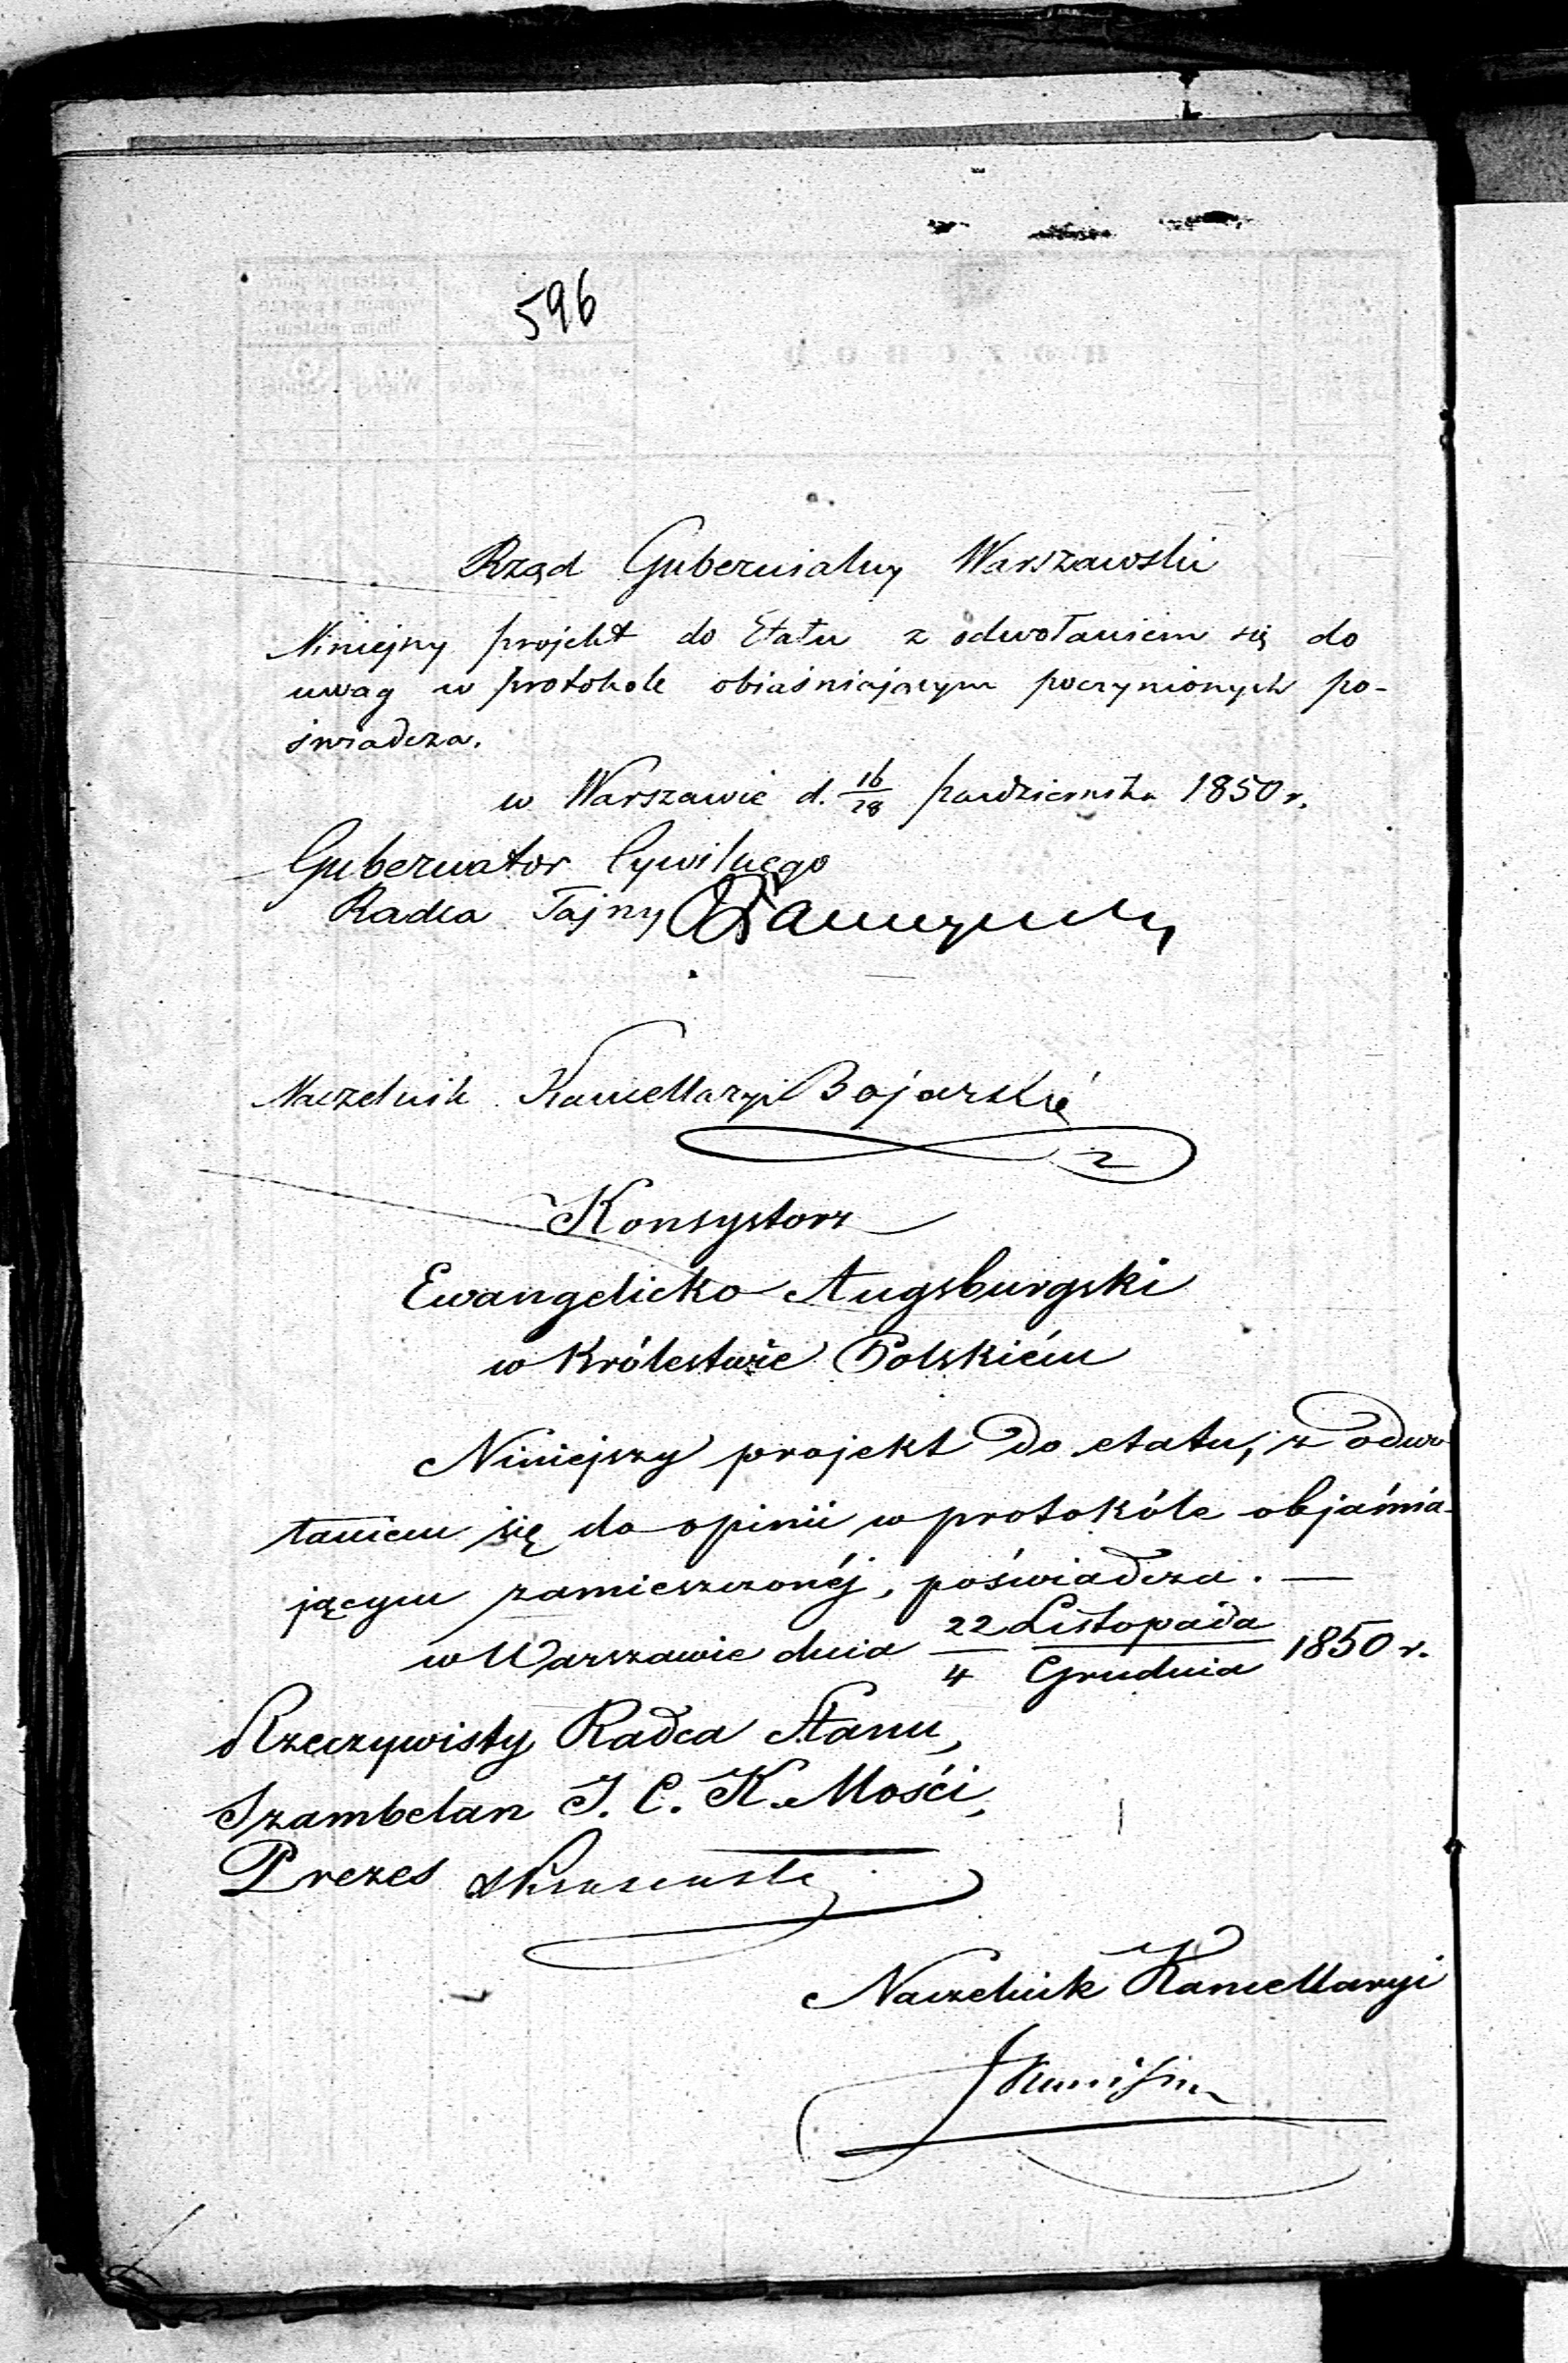 596
Rząd Gubernialny Warszawski
Niniejszy projekt do Etatu z odwołaniem się do
uwag w protokole obiaśniającym poczynionych po-
świadcza.
w Warszawie d. 16/28 października 1850 r.
Gubernator Cywilnego
Radca Tajny
Naczelnik Kancellaryi Bojarski
Konsystorz
Ewangelicko Augsburgski
w Królestwie Polskiém
Niniejszy projekt do etatu, z odwo
łaniem się do opinii w protokóle objaśnia-
jącym zamieszczonéj, poświadcza. —
w Warszawie dnia 22 Listopada / 4 Grudnia 1850 r.
Rzeczywisty Radca Stanu,
Szambelan J. C. K. Mości,
Prezes
Naczelnik Kancellaryi